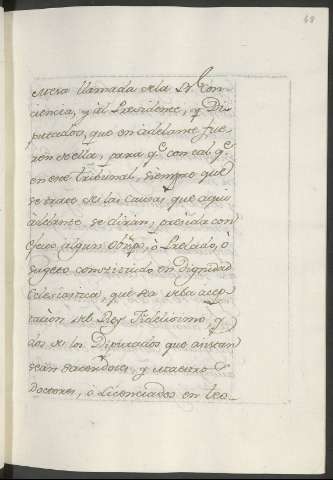 68
Mesa llamada de la Rl. Con-
ciencia, y al Presidente, y Di-
putados, que en adelante fue-
ren de ella, para qe. con tal qe.
en ese Tribunal, siempre que
se trate de las causas, que aqui
adelante se dirán, presida con
efecto algun Obispo, ò Prelado, ò
sugeto constituido en Dignidad
Eclesiastica, que sea de la acep-
tacion del Rey Fidelisimo, y
dos de los Diputados que asistan
sean Sacerdotes, y Maestro
Doctores, ò Licenciados en Teo-